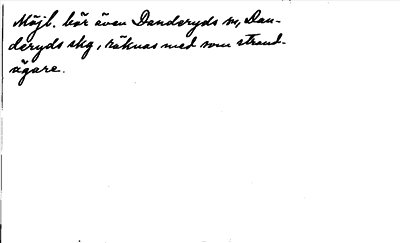 Möjl. bör även Danderyds sn, Dan-
deryds skg, räknas med som strand-
ägare.